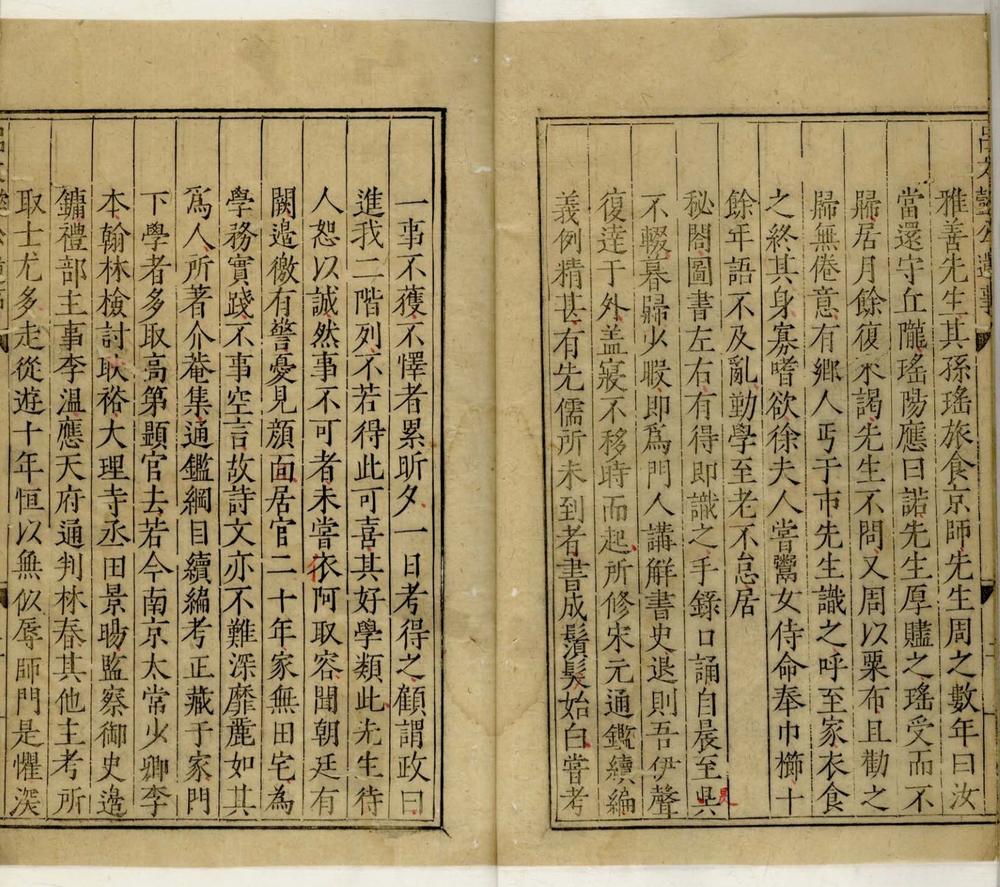 呂文懿公遺事
雅善先生其孫瑤旅食京師先生周之數年曰汝
當還守丘隴瑤陽應曰諾先生厚贐之瑤受而不
歸居月餘復來謁先生不問又周以粟布且勸之
歸無倦意有鄉人丐于市先生識之呼至家衣食
之終其身寡嗜欲徐夫人嘗鬻女侍命奉巾櫛十
餘年語不及亂勤學至老不怠居
秘閣圖書左右有得即識之手錄口誦自晨至昃
不輟暮歸少暇即爲門人講解書史退則吾伊聲
復達于外盖寢不移時而起所修宋元通鑑續編
義例精甚有先儒所未到者書成鬚髮始白嘗考
一事不獲不懌者累昕夕一日考得之顧謂政曰
進我二階列不若得此可喜其好學類此先生待
人恕以誠然事不可者未嘗依阿取容聞朝廷有
闕邉徼有警憂見顔面居官二十年家無田宅為
學務實踐不事空言故詩文亦不難深靡麗如其
爲人所著介菴集通鑑綱目續編考正藏于家門
下學者多取高第顯官去若今南京太常少卿李
本翰林檢討耿裕大理寺丞田景暘監察御史邉
鏞禮部主事李溫應天府通判林春其他主考所
取士尤多走從遊十年恒以無似辱師門是懼深